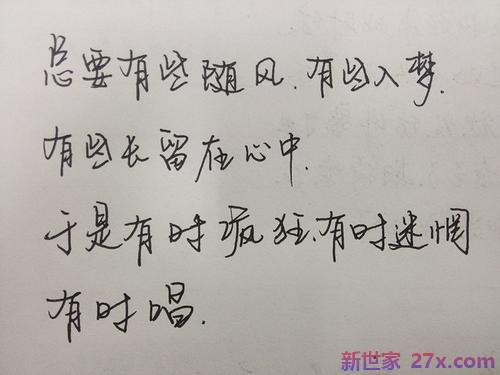 总要有些随风.有些入梦.
有些长留在心中.
于是有时疯狂.有时迷惘
有时唱.
新世家 27x.com